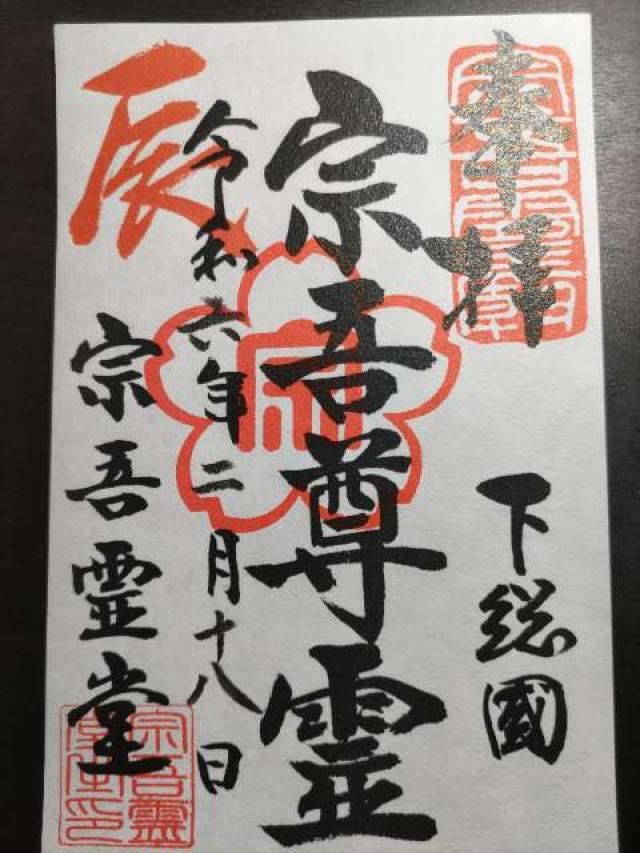 奉拝
下総國
宗吾尊霊
令和六年二月十八日
辰
宗吾霊堂